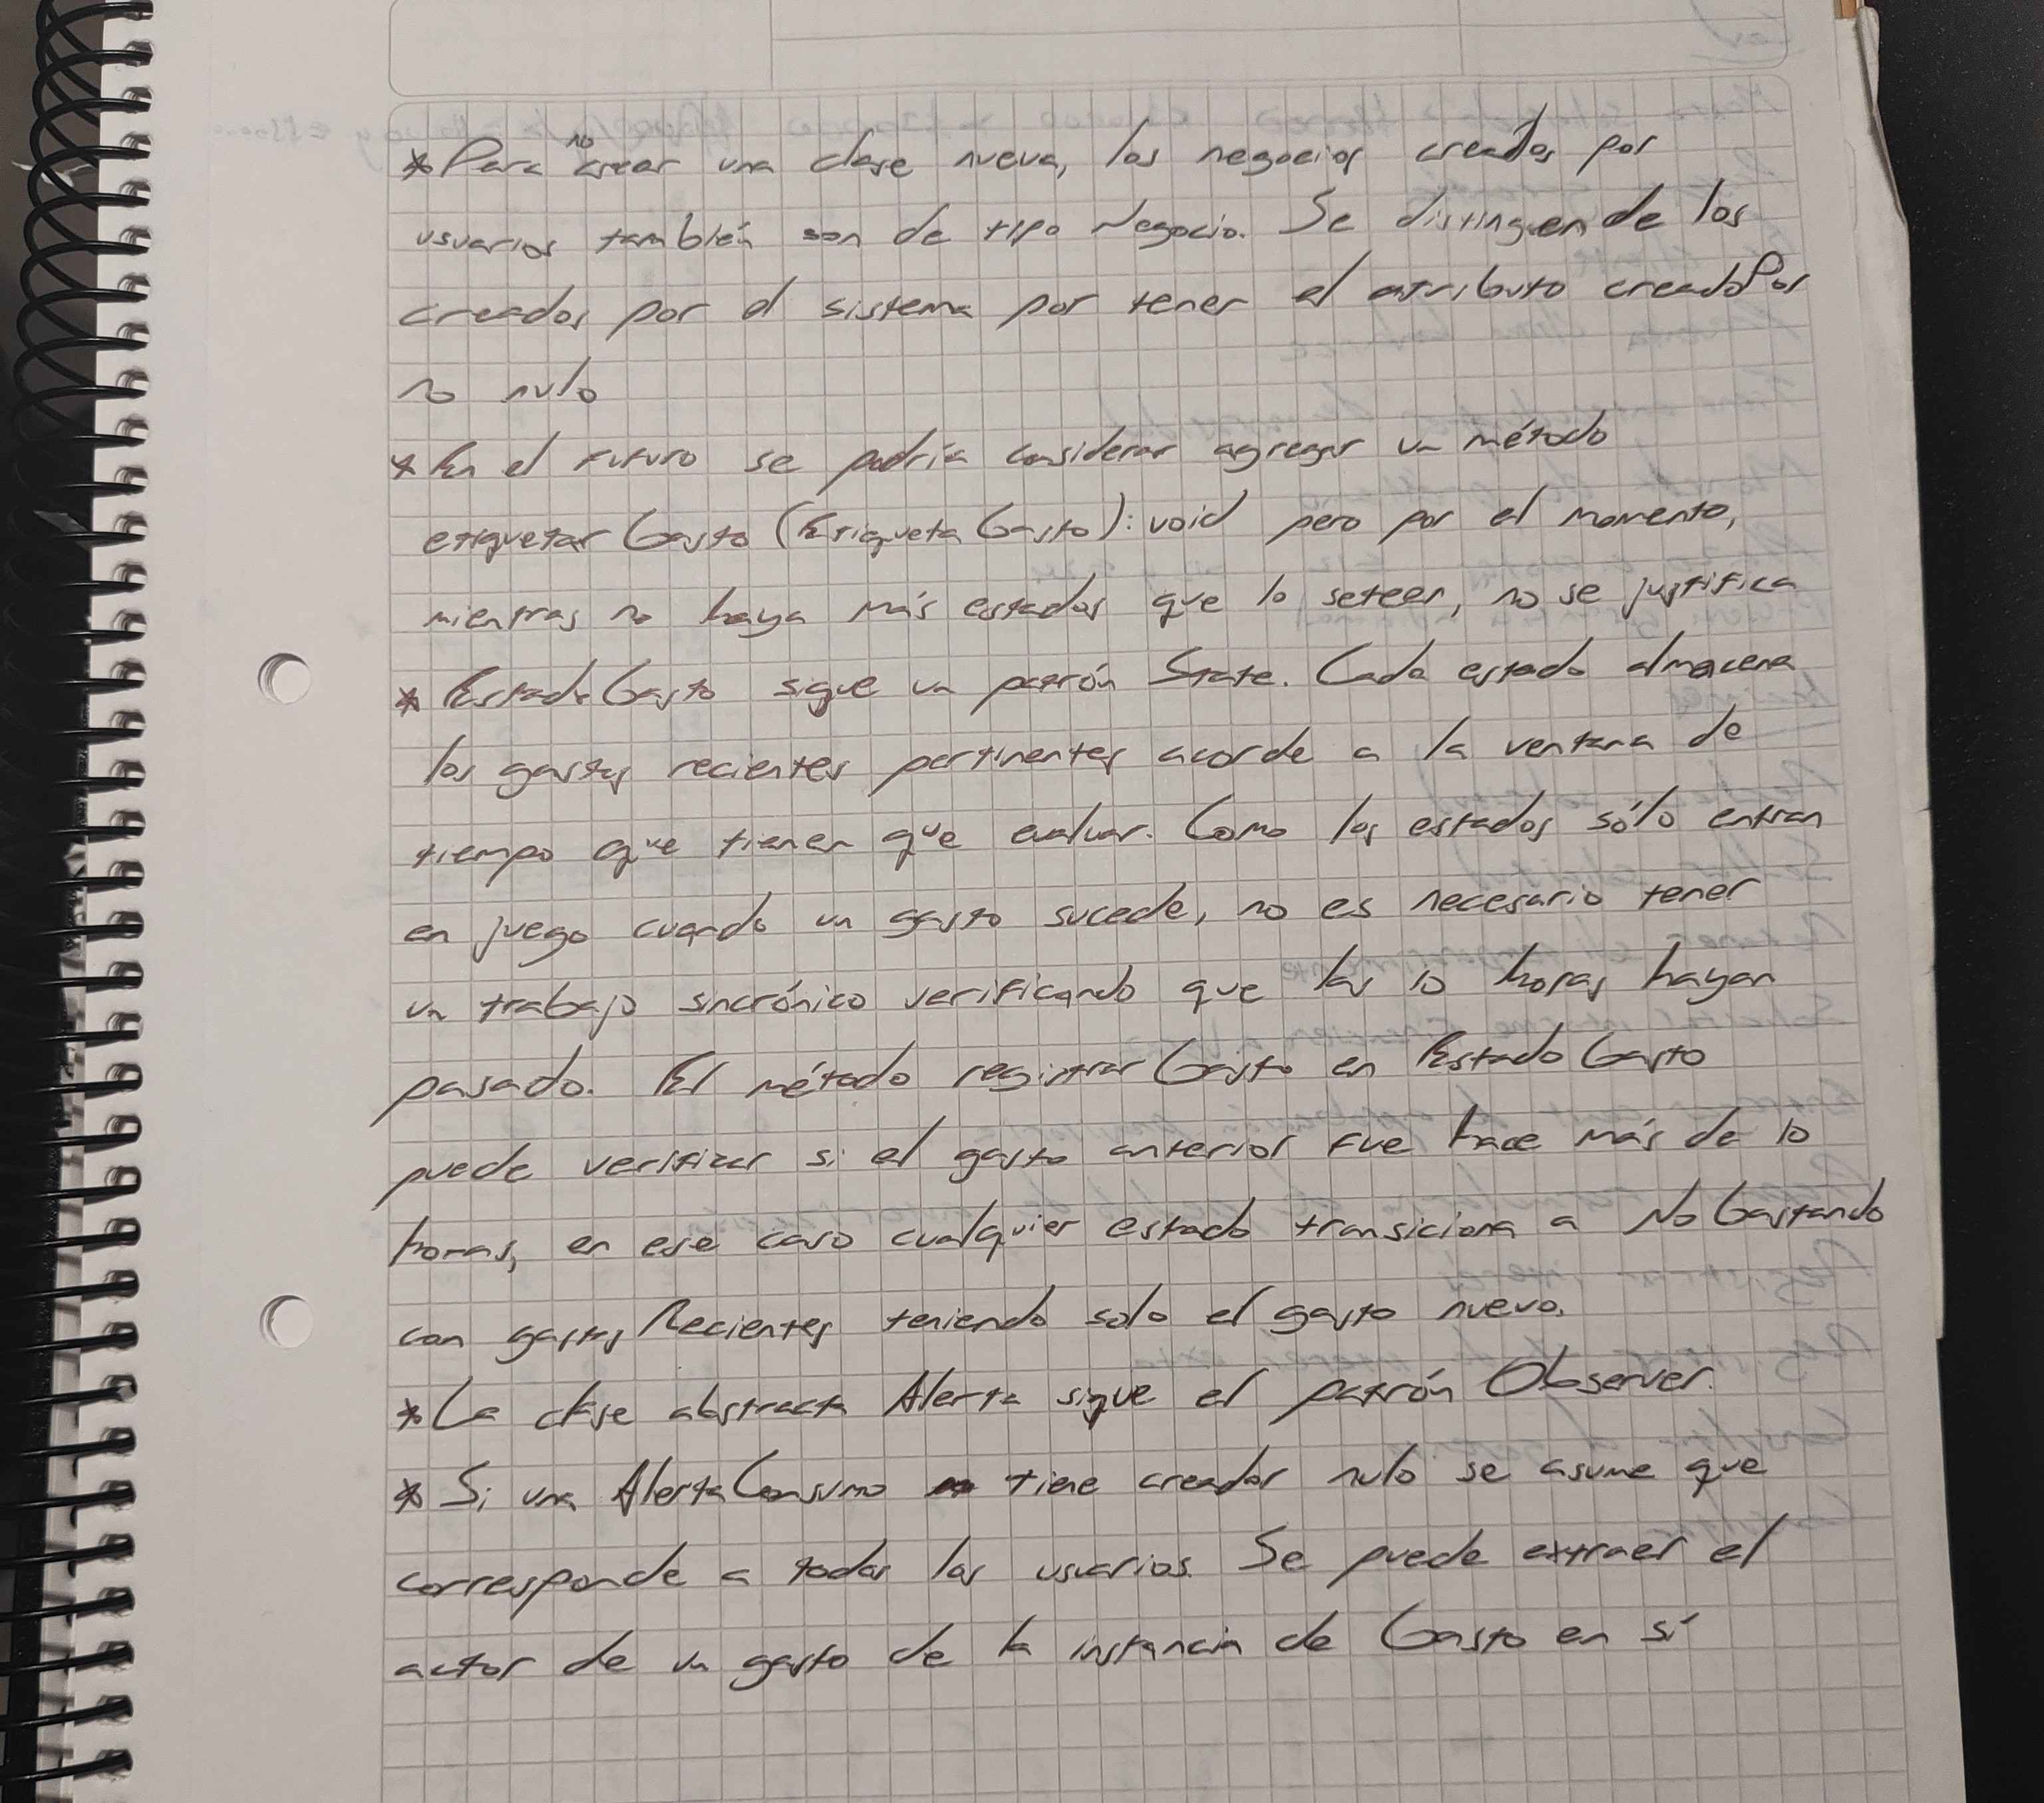 * Para no crear una clase nueva, los negocios creados por
usuarios también son de tipo Negocio. Se distinguen de los
creados por el sistema por tener el atributo creadoPor
no nulo
* En el futuro se podría considerar agregar un método
etiquetarGasto (EtiquetaGasto): void pero por el momento,
mientras no haya más estados que lo seteen, no se justifica
* EstadoGasto sigue un patrón State. Cada estado almacena
los gastos recientes pertinentes acorde a la ventana de
tiempo que tienen que evaluar. Como los estados sólo entran
en juego cuando un gasto sucede, no es necesario tener
un trabajo sincrónico verificando que las 10 horas hayan
pasado. El método registrarGasto en EstadoGasto
puede verificar si el gasto anterior fue hace más de 10
horas, en ese caso cualquier estado transiciona a NoGastando
con gastosRecientes teniendo solo el gasto nuevo.
* La clase abstracta Alerta sigue el patrón Observer.
* Si una AlertaConsumo tiene creador nulo se asume que
corresponde a todos los usuarios. Se puede extraer el
actor de un gasto de la instancia de Gasto en sí